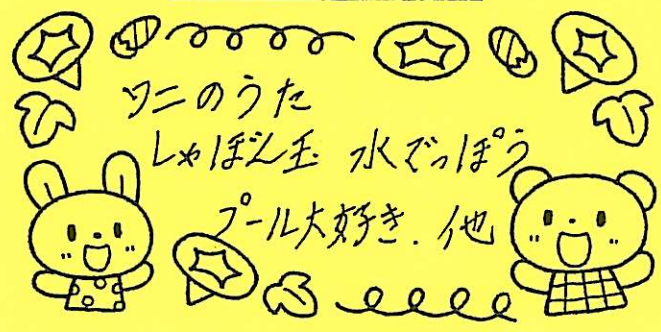 ワニのうた
しゃぼん玉 水でっぽう
プール大好き．他